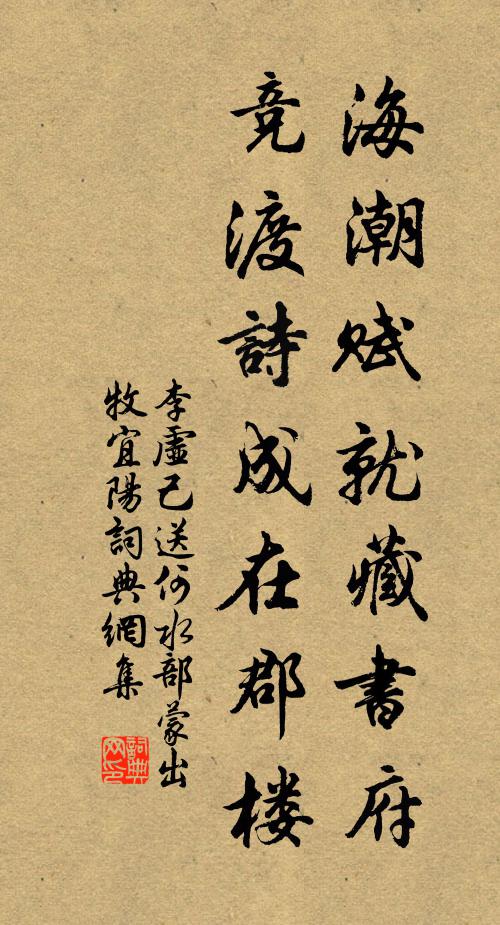 海潮赋就藏書府
竞渡詩成在郡楼
李虛己送何水部蒙出
牧宜陽詞典網集
詞典网印